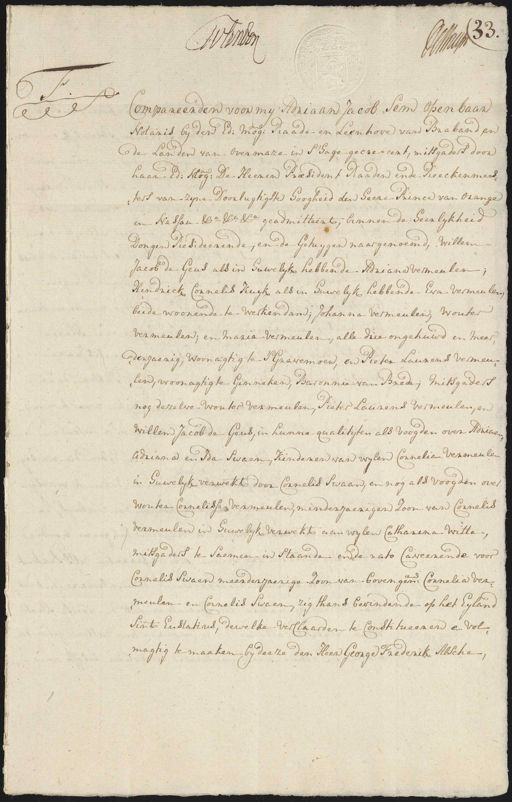 33.
Compareerden voor my Adriaan Jacob Sem openbaar
Notaris by den Ed: Mog: Raade en Leenhove van Braband en
de Landen van Overmaze in s'Hage gecreëert, mitsgaders door
haar Ed: Mog: De Heeren Præsident Raaden ende Reeckenmees„
ters van zyne Doorlugtigste Hoogheid den Heere Prince van Orange
en Nassau &ca &ca &ca geadmitteert, binnen de Heerlykheid
Dongen Resideerende, en de Getuygen naargenoemd, Willem
Jacob de Geus als in Huwelyk hebbende Adriana Vermeulen;
Hendrick Cornelis Kuyk als in Huwelyk hebbende Eva Vermeulen,
beide woonende te Werkendam; Johanna Vermeulen, Wouter
Vermeulen, en Maria Vermeulen, alle drie ongehuwd en meer„
derjaerig, woonagtig te s'Gravemoer, en Pieter Laurens Vermeu„
len, woonagtig te Ginneken, Baronnie van Breda; Mitsgaders
nog dezelve Wouter Vermeulen, Pieter Laurens Vermeulen, en
Willem Jacob de Geus, in hunne qualiteyten als voogden over Adriaan,
Adriana en Ida Swaen, Kinderen van wylen Cornelia Vermeulen
in Huwelyk verwekt door Cornelis Swaan, en nog als voogden over
Wouter Cornelisse Vermeulen, minderjaerigen Zoon van Cornelis
Vermeulen in Huwelyk verwekt aan wylen Catharina Witte,
mitsgaders te Saemen in Staande ende rato Caveerende voor
Cornelis Swaen meerderjaerige Zoon van bovengem: Cornelia Ver„
meulen en Cornelis Swaen, zig thans bevindende op het Eyland
Sint Eustatius, dewelke verclaarden te Constitueeren en vol„
magtig te maaken by deeze den Heer George Frederik Absche,